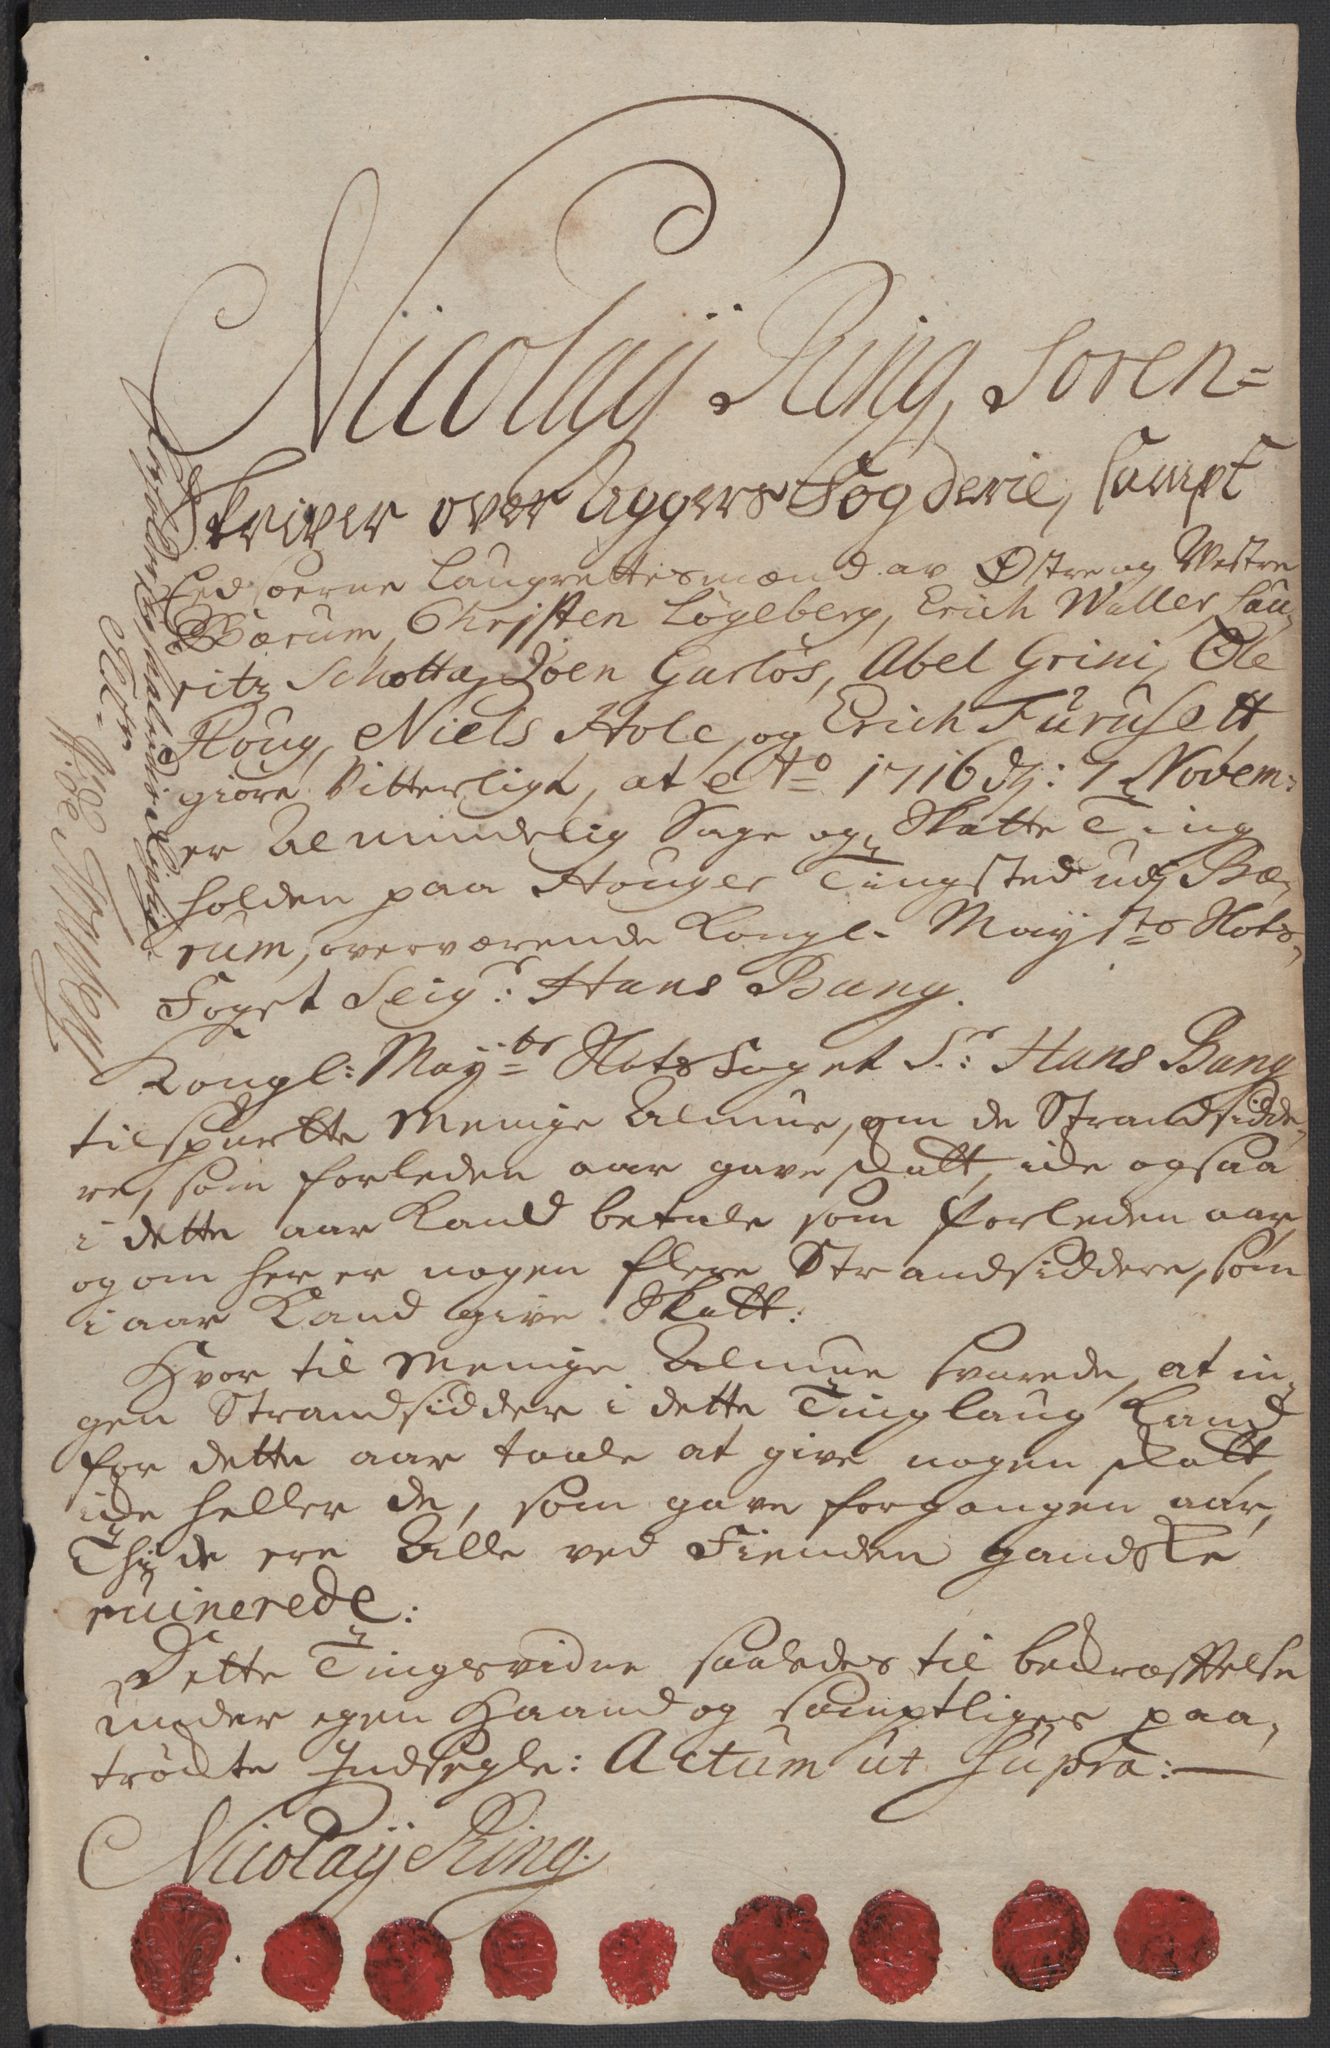 Nicolaij Ring, Soren=
Skriver over Aggers Fogderie, sampt
Eedsoerne Laugrettesmænd av Østre og Westre
Bærum, Christen Løgeberg, Erich Waller, Lau,
ritz Schotta, Joen Gurløs, Abel Grini, Ole
Houg, Niels Hole, og Erich Furusett
giøre Vitterligt, at Ao 1716 dj: 7 Novem:
er Almindelig Sage og Skatte Ting
holden paa Houger Tingsted udj Bæ,
rum, overværende Kongl. Mayts Slots,
Foget Seigr: Hans Bang.
Kongl: Mayts Slotsfoget Sr: Hans Bang
tilspurtte Menige Almue, om de Strandsidde,
re, som forleden aar gave skatt, icke ogsaa
i dette aar kand betale som forleden aar,
og om her er nogen flere Strandsiddere, som
i aar kand give Skatt:
Hvor til Menige Almue svarede, at in,
gen Strandsidder i dette Tinglaug kand
for dette aar taale at give nogen skatt,
icke heller de, som gave forgangen aar,
Thj de ere Alle ved Fienden gandske
ruinerede:
Dette Tingsvidne saaledes til bekræfftelse
under egen Haand og samptliges paa,
trøcte Indsegle: Actum ut supra:
Nicolaij Ring.